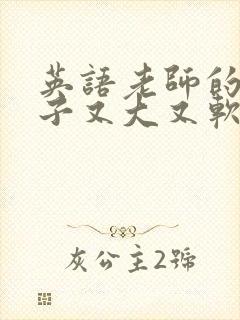 英語老師的
子又大又軟
灰公主2號